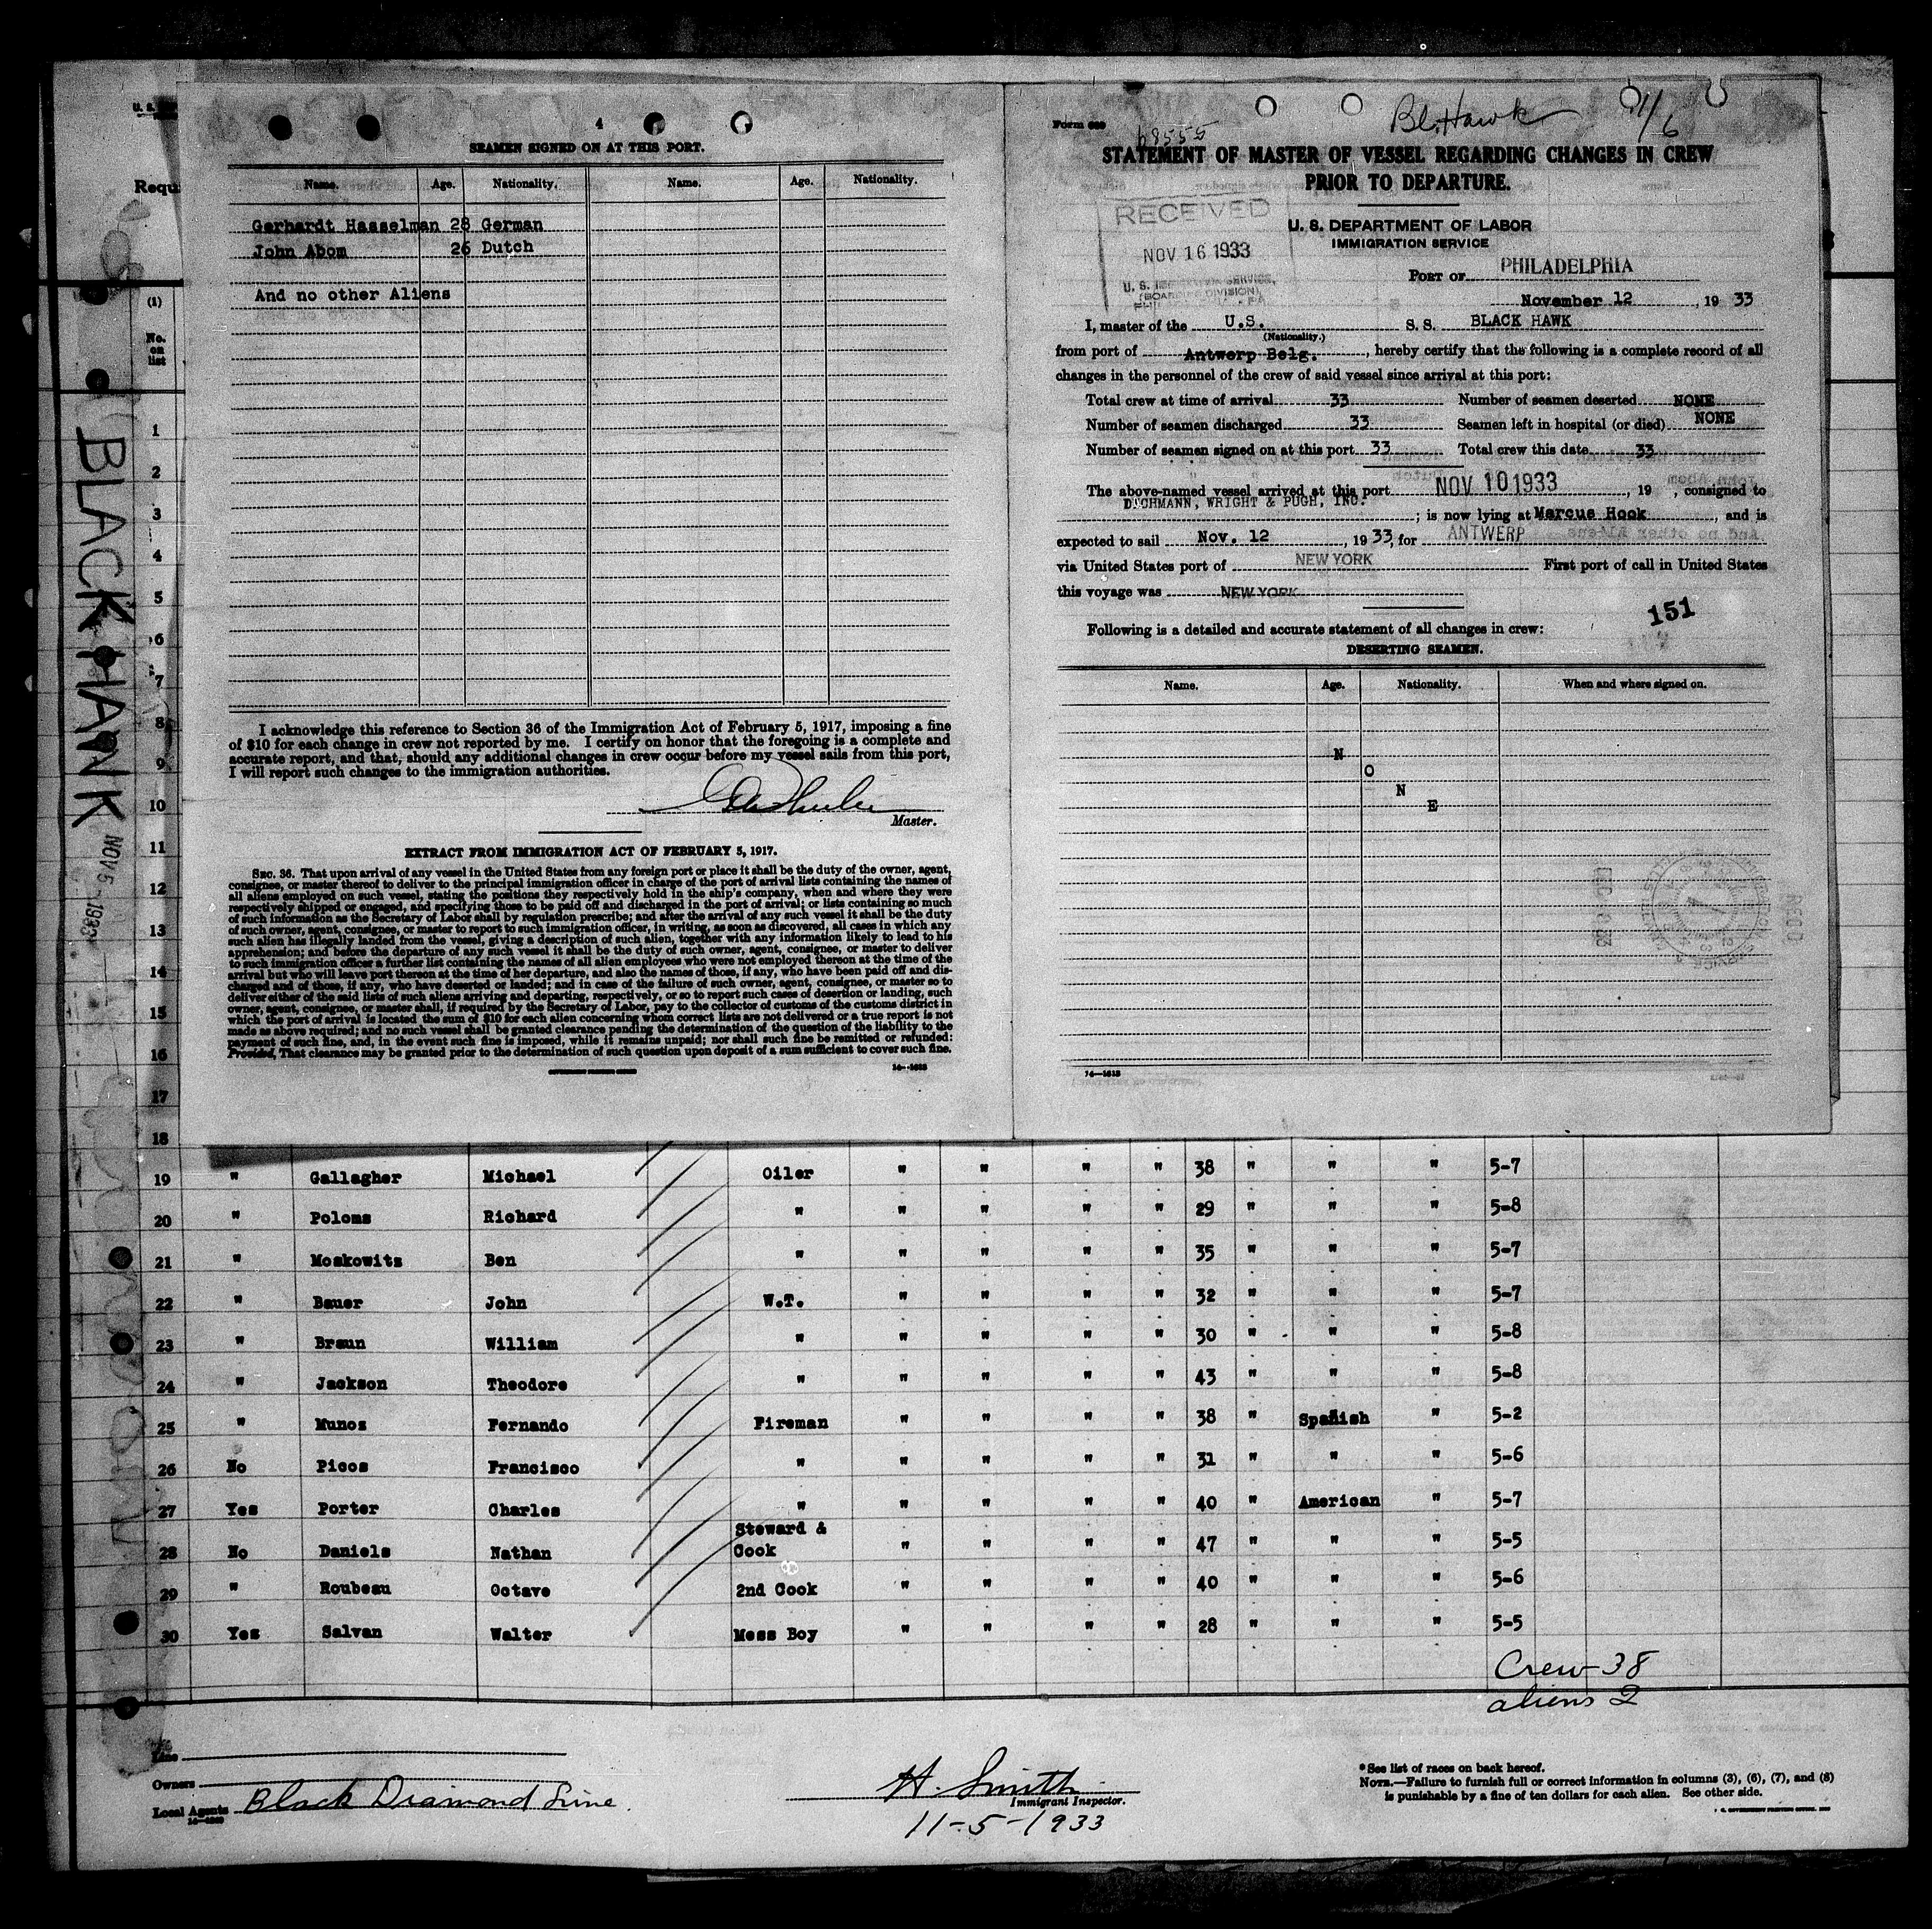 U. S.
Requ
(1)
No.
on
list
BLACK HAWK
NOV 5-1933
4
SEAMEN SIGNED ON AT THIS PORT.
Name. Age. Nationality. Name. Age. Nationality.
Gerhardt Hasselman 28 German
John Abom 26 Dutch
And no other Aliens
I acknowledge this reference to Section 36 of the Immigration Act of February 5, 1917, imposing a fine
of $10 for each change in crew not reported by me. I certify on honor that the foregoing is a complete and
accurate report, and that, should any additional changes in crew occur before my vessel sails from this port,
I will report such changes to the immigration authorities.
Master.
EXTRACT FROM IMMIGRATION ACT OF FEBRUARY 5, 1917.
SEC. 36. That upon arrival of any vessel in the United States from any foreign port or place it shall be the duty of the owner, agent,
consignee, or master thereof to deliver to the principal immigration officer in charge of the port of arrival lists containing the names of
all aliens employed on such vessel, stating the positions they respectively hold in the ship's company, when and where they were
respectively shipped or engaged, and specifying those to be paid off and discharged in the port of arrival; or lists containing so much
of such information as the Secretary of Labor shall by regulation prescribe; and after the arrival of any such vessel it shall be the duty
of such owner, agent, consignee, or master to report to such immigration officer, in writing, as soon as discovered, all cases in which any
such alien has illegally landed from the vessel, giving a description of such alien, together with any information likely to lead to his
apprehension; and before the departure of any such vessel it shall be the duty of such owner, agent, consignee, or master to deliver
to such immigration officer a further list containing the names of all alien employees who were not employed thereon at the time of the
arrival but who will leave port thereon at the time of her departure, and also the names of those, if any, who have been paid off and dis-
charged and of those, if any, who have deserted or landed; and in case of the failure of such owner, agent, consignee, or master so to
deliver either of the said lists of such aliens arriving and departing, respectively, or so to report such cases of desertion or landing, such
owner, agent, consignee, or master shall, if required by the Secretary of Labor, pay to the collector of customs of the customs district in
which the port of arrival is located the sum of $10 for each alien concerning whom correct lists are not delivered or a true report is not
made as above required; and no such vessel shall be granted clearance pending the determination of the question of the liability to the
payment of such fine, and, in the event such fine is imposed, while it remains unpaid; nor shall such fine be remitted or refunded:
Provided, That clearance may be granted prior to the determination of such question upon deposit of a sum sufficient to cover such fine.
GOVERNMENT PRINTING OFFICE 14-1613
Form 689
68555
Bl. Hawk 11/6
STATEMENT OF MASTER OF VESSEL REGARDING CHANGES IN CREW
PRIOR TO DEPARTURE.
RECEIVED
NOV 16 1933
U. S. IMMIGRATION SERVICE,
(BOARDING DIVISION)
U. S. DEPARTMENT OF LABOR
IMMIGRATION SERVICE
PORT OF PHILADELPHIA
November 12, 1933
I, master of the U.S. S. S. BLACK HAWK
(Nationality.)
from port of Antwerp Belg., hereby certify that the following is a complete record of all
changes in the personnel of the crew of said vessel since arrival at this port:
Total crew at time of arrival 33 Number of seamen deserted NONE
Number of seamen discharged 33 Seamen left in hospital (or died) NONE
Number of seamen signed on at this port 33 Total crew this date 33
The above-named vessel arrived at this port NOV 10 1933, 19 , consigned to
DICHMANN, WRIGHT & PUGH, INC. ; is now lying at Marcus Hook, and is
expected to sail Nov. 12, 1933, for ANTWERP
via United States port of NEW YORK First port of call in United States
this voyage was NEW YORK
151
Following is a detailed and accurate statement of all changes in crew:
DESERTING SEAMEN.
Name. Age. Nationality. When and where signed on.
N
O
N
E
14-1613
1
2
3
4
5
6
7
8
9
10
11
12
13
14
15
16
17
18
19 " Gallagher Michael Oiler " " " " 38 " " " 5-7
20 " Poloms Richard " " " " " 29 " " " 5-8
21 " Moskowitz Ben " " " " " 35 " " " 5-7
22 " Bauer John W.T. " " " " 32 " " " 5-7
23 " Braun William " " " " " 30 " " " 5-8
24 " Jackson Theodore " " " " " 43 " " " 5-8
25 " Munoz Fernando Fireman " " " " 38 " Spanish " 5-2
26 No Picos Francisco " " " " " 31 " " " 5-6
27 Yes Porter Charles " " " " " 40 " American " 5-7
28 No Daniels Nathan Steward & Cook " " " " 47 " " " 5-5
29 " Roubeau Octave 2nd Cook " " " " 40 " " " 5-6
30 Yes Salvan Walter Mess Boy " " " " 28 " " " 5-5
Crew 38
aliens 2
Line
Owners
Local Agents Black Diamond Line.
H. Smith
Immigrant Inspector.
11-5-1933
*See list of races on back hereof.
NOTE.—Failure to furnish full or correct information in columns (3), (6), (7), and (8)
is punishable by a fine of ten dollars for each alien. See other side.
U. S. GOVERNMENT PRINTING OFFICE